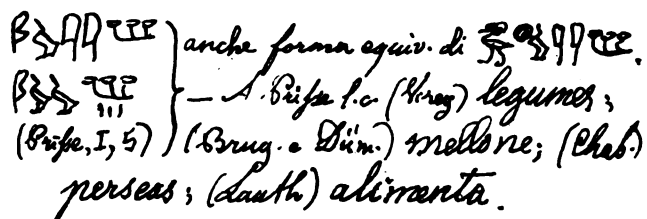 anche forma equiv. di
— A. Prisse l. c. (Virey) legumes;
(Prisse, I, 5) (Brug. e Düm.) mellone; (Chab.)
perseas; (Lauth) alimenta.